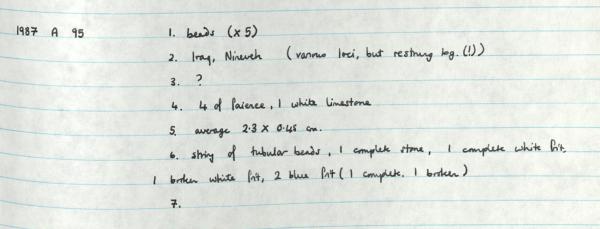 1987 A 95 1. beads (x 5)
2. Iraq, Nineveh (various loci, but restrung tog. (!))
3. ?
4. 4 of faience, 1 white limestone
5. average 2.3 x 0.45 cm.
6. string of tubular beads, 1 complete stone, 1 complete white frit,
1 broken white frit, 2 blue frit (1 complete, 1 broken)
7.